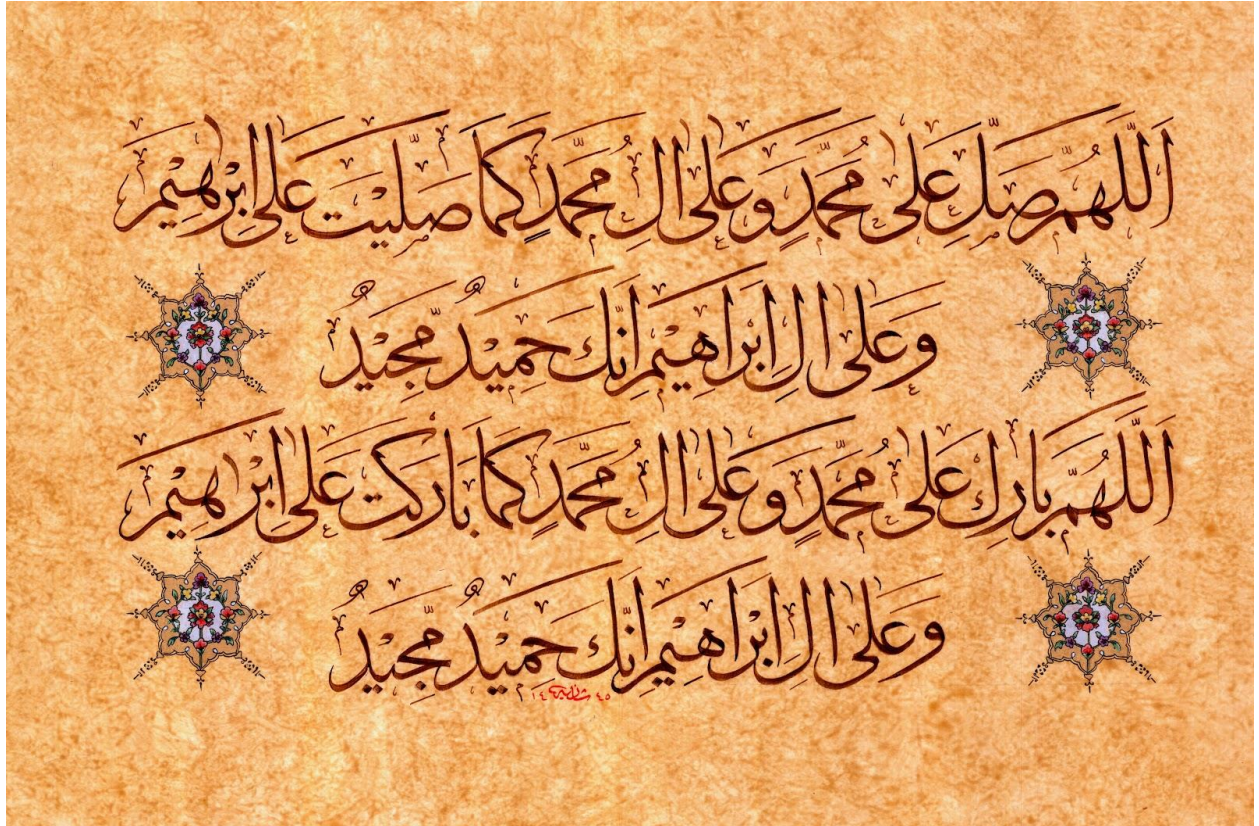 اَللّٰهُمَّ صَلِّ عَلٰى مُحَمَّدٍ وَعَلٰى اٰلِ مُحَمَّدٍ كَمَا صَلَّيْتَ عَلٰى اِبْرٰهِيْمَ
وَعَلٰى اٰلِ اِبْرَاهِيْمَ اِنَّكَ حَمِيْدٌ مَّجِيْدٌ
اَللّٰهُمَّ بَارِكْ عَلٰى مُحَمَّدٍ وَعَلٰى اٰلِ مُحَمَّدٍ كَمَا بَارَكْتَ عَلٰى اِبْرٰهِيْمَ
وَعَلٰى اٰلِ اِبْرَاهِيْمَ اِنَّكَ حَمِيْدٌ مَّجِيْدٌ